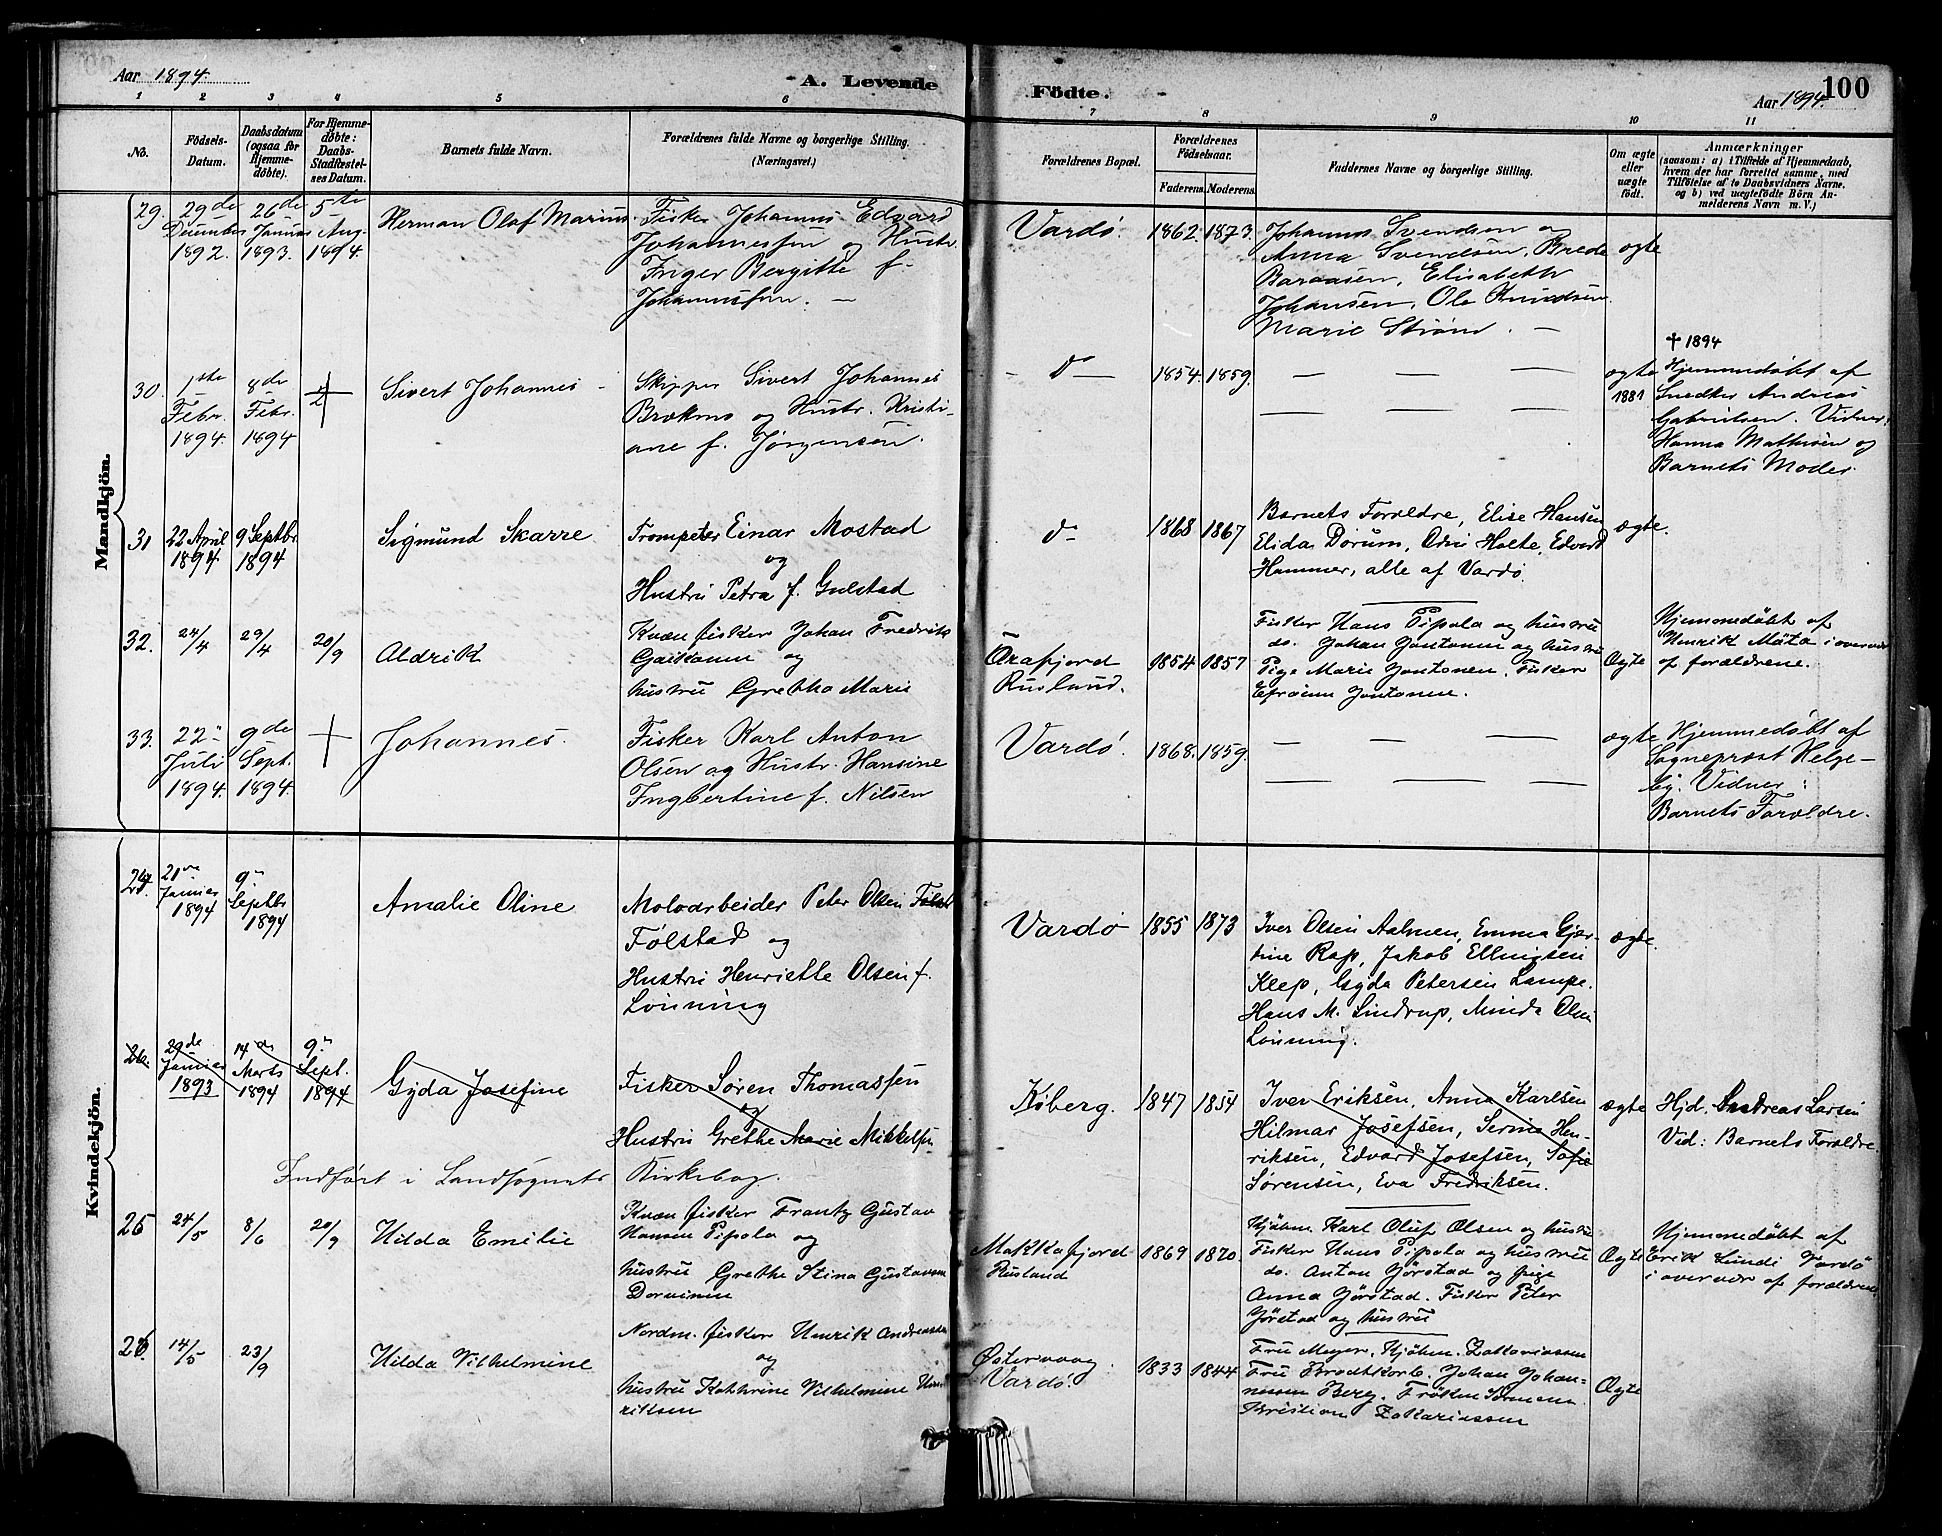 Aar 1894.
A. Levende
Födte.
100
Aar 1894.
1 2 3 4 5 6 7 8 9 10 11
No.
Födsels-
Datum.
Daabsdatum
(ogsaa for
Hjemme-
døbte).
For Hjemme-
døbte:
Daabs-
Stadfæstel-
ses Datum.
Barnets fulde Navn.
Forældrenes fulde Navne og borgerlige Stilling.
(Næringsvei.)
Forældrenes Bopæl.
Forældrenes
Födselsaar.
Faderens. Moderens.
Faddernes Navne og borgerlige Stilling.
Om ægte
eller
uægte
født.
Anmærkninger
(saasom: a) i Tilfælde af Hjemmedaab,
hvem der har forrettet samme, med
Tilföielse af to Daabsvidners Navne,
og b) ved uægtefödte Börn An-
melderens Navn m. V.)
Mandkjön.
29. 29de December 1892. 26de Januar 1893. 5te Aug. 1894.
Herman Olaf Marius.
Fisker Johannes Edvard
Johannessen og Hustr.
Inger Bergitte f.
Johannessen. —
Vardø. 1862. 1873.
Johannes Svendsen og
Anna Svendsen, Brede
Baraasen, Elisabeth
Johansen, Ole Knudsen
Marie Strøm. —
ægte
30. 1ste Febr. 1894. 8de Febr. 1894
Sivert Johannes
Skipper Sivert Johannes
Brækmo og Hustr. Kristi-
ane f. Jørgensen.
— d — 1854. 1859.
— — —
— — —
ægte
1881
† 1894
Hjemmedøbt af
Snedker Andreas
Gabrielsen. Vidner:
Hanna Mathisen og
Barnets Moder.
31 22 April 1894. 9 Septbr 1894
Sigmund Skarre
Trompeter Einar Mostad
og
Hustru Petra f. Gulstad
d— 1868 1867
Barnets Forældre, Elise Hansen
Elida Dørum, Odin Holte, Edvard
Hammer, alle af Vardø.
ægte.
32. 24/4 29/4 20/9
Aldrik
Kvæn fisker Johan Fredrik
Gaikanen og
hustru Gretha Marie
Arafjord
Rusland.
1854 1857
Fisker Hans Pipola og hustru
do. Johan Jontonen og hustru
Pige Marie Jontonen. Fisker
Efraim Jontonen.
Ægte
Hjemmedøbt af
Henrik Mäta i overvær
af forældrene.
33. 22" Juli 1894. 9de Sept. 1894.
Johannes.
Fisker Karl Anton
Olsen og Hustr. Hansine
Ingbertine f. Nilsen
Vardø. 1868. 1859.
— — —
— — —
ægte
Hjemmedøbt af
Sogneprest Helge-
by. Vidner:
Barnets Forældre.
Kvindekjön.
24. 21de Januar 1894 9" Septbr 1894
Amalie Oline
Moloarbeider Peter Olsen
Følstad og
Hustru Henriette Olsen f.
Lønning
Vardø 1855 1873
Iver Olsen Aalmen, Emma Gjer-
tine Rap, Jakob Ellingsen
Klep, Gyda Petersen Lampe.
Hans M. Lindrup, Minda Olsen
Lønning.
ægte.
29de Januar 1893 14de Marts 1894 9" Sept. 1894
Gyda Josefine
Fisker Søren Thomassen
og
Hustru Grethe Marie Mikkelsen
Indført i Landsognets Kirkebog.
Kiberg. 1847 1854
Iver Eriksen, Anna Karlsen
Hilmar Josefsen, Serina Hen-
riksen, Edvard Josefsen, Sofie
Sørensen, Eva Fredriksen.
ægte
Hjd. Andreas Larsen
Vid: Barnets Forældre
25 24/5 8/6 20/9
Hilda Emilie
Kvæn fisker Frantz Gustav
Hansen Pipola og
hustru Grethe Stina Gustavsen
Makkafjord
Rusland
1869 1870.
Kjøbm. Karl Oluf Olsen og hustru
Fisker Hans Pipola og hustru
do. Anton Gjørstad og pige
Anna Gjørstad. Fisker Peter
Gjørstad og hustru
Ægte
Hjemmedøbt af
Erik Lundi Vardø
i overvær af forældrene
26. 14/5 23/9
Hilda Vilhelmine
Nordm. fisker Henrik Andreassen
og
hustru Kathrine Vilhelmine Hen-
riksen
Østervaag.
Vardø.
1833 1844
Fru Meyer. Kjøbm. Zakkariassen
Fru Brodtkorb. Johan Johan-
nessen Berg. Frøken Sørensen.
Kristian Zakariassen
Ægte